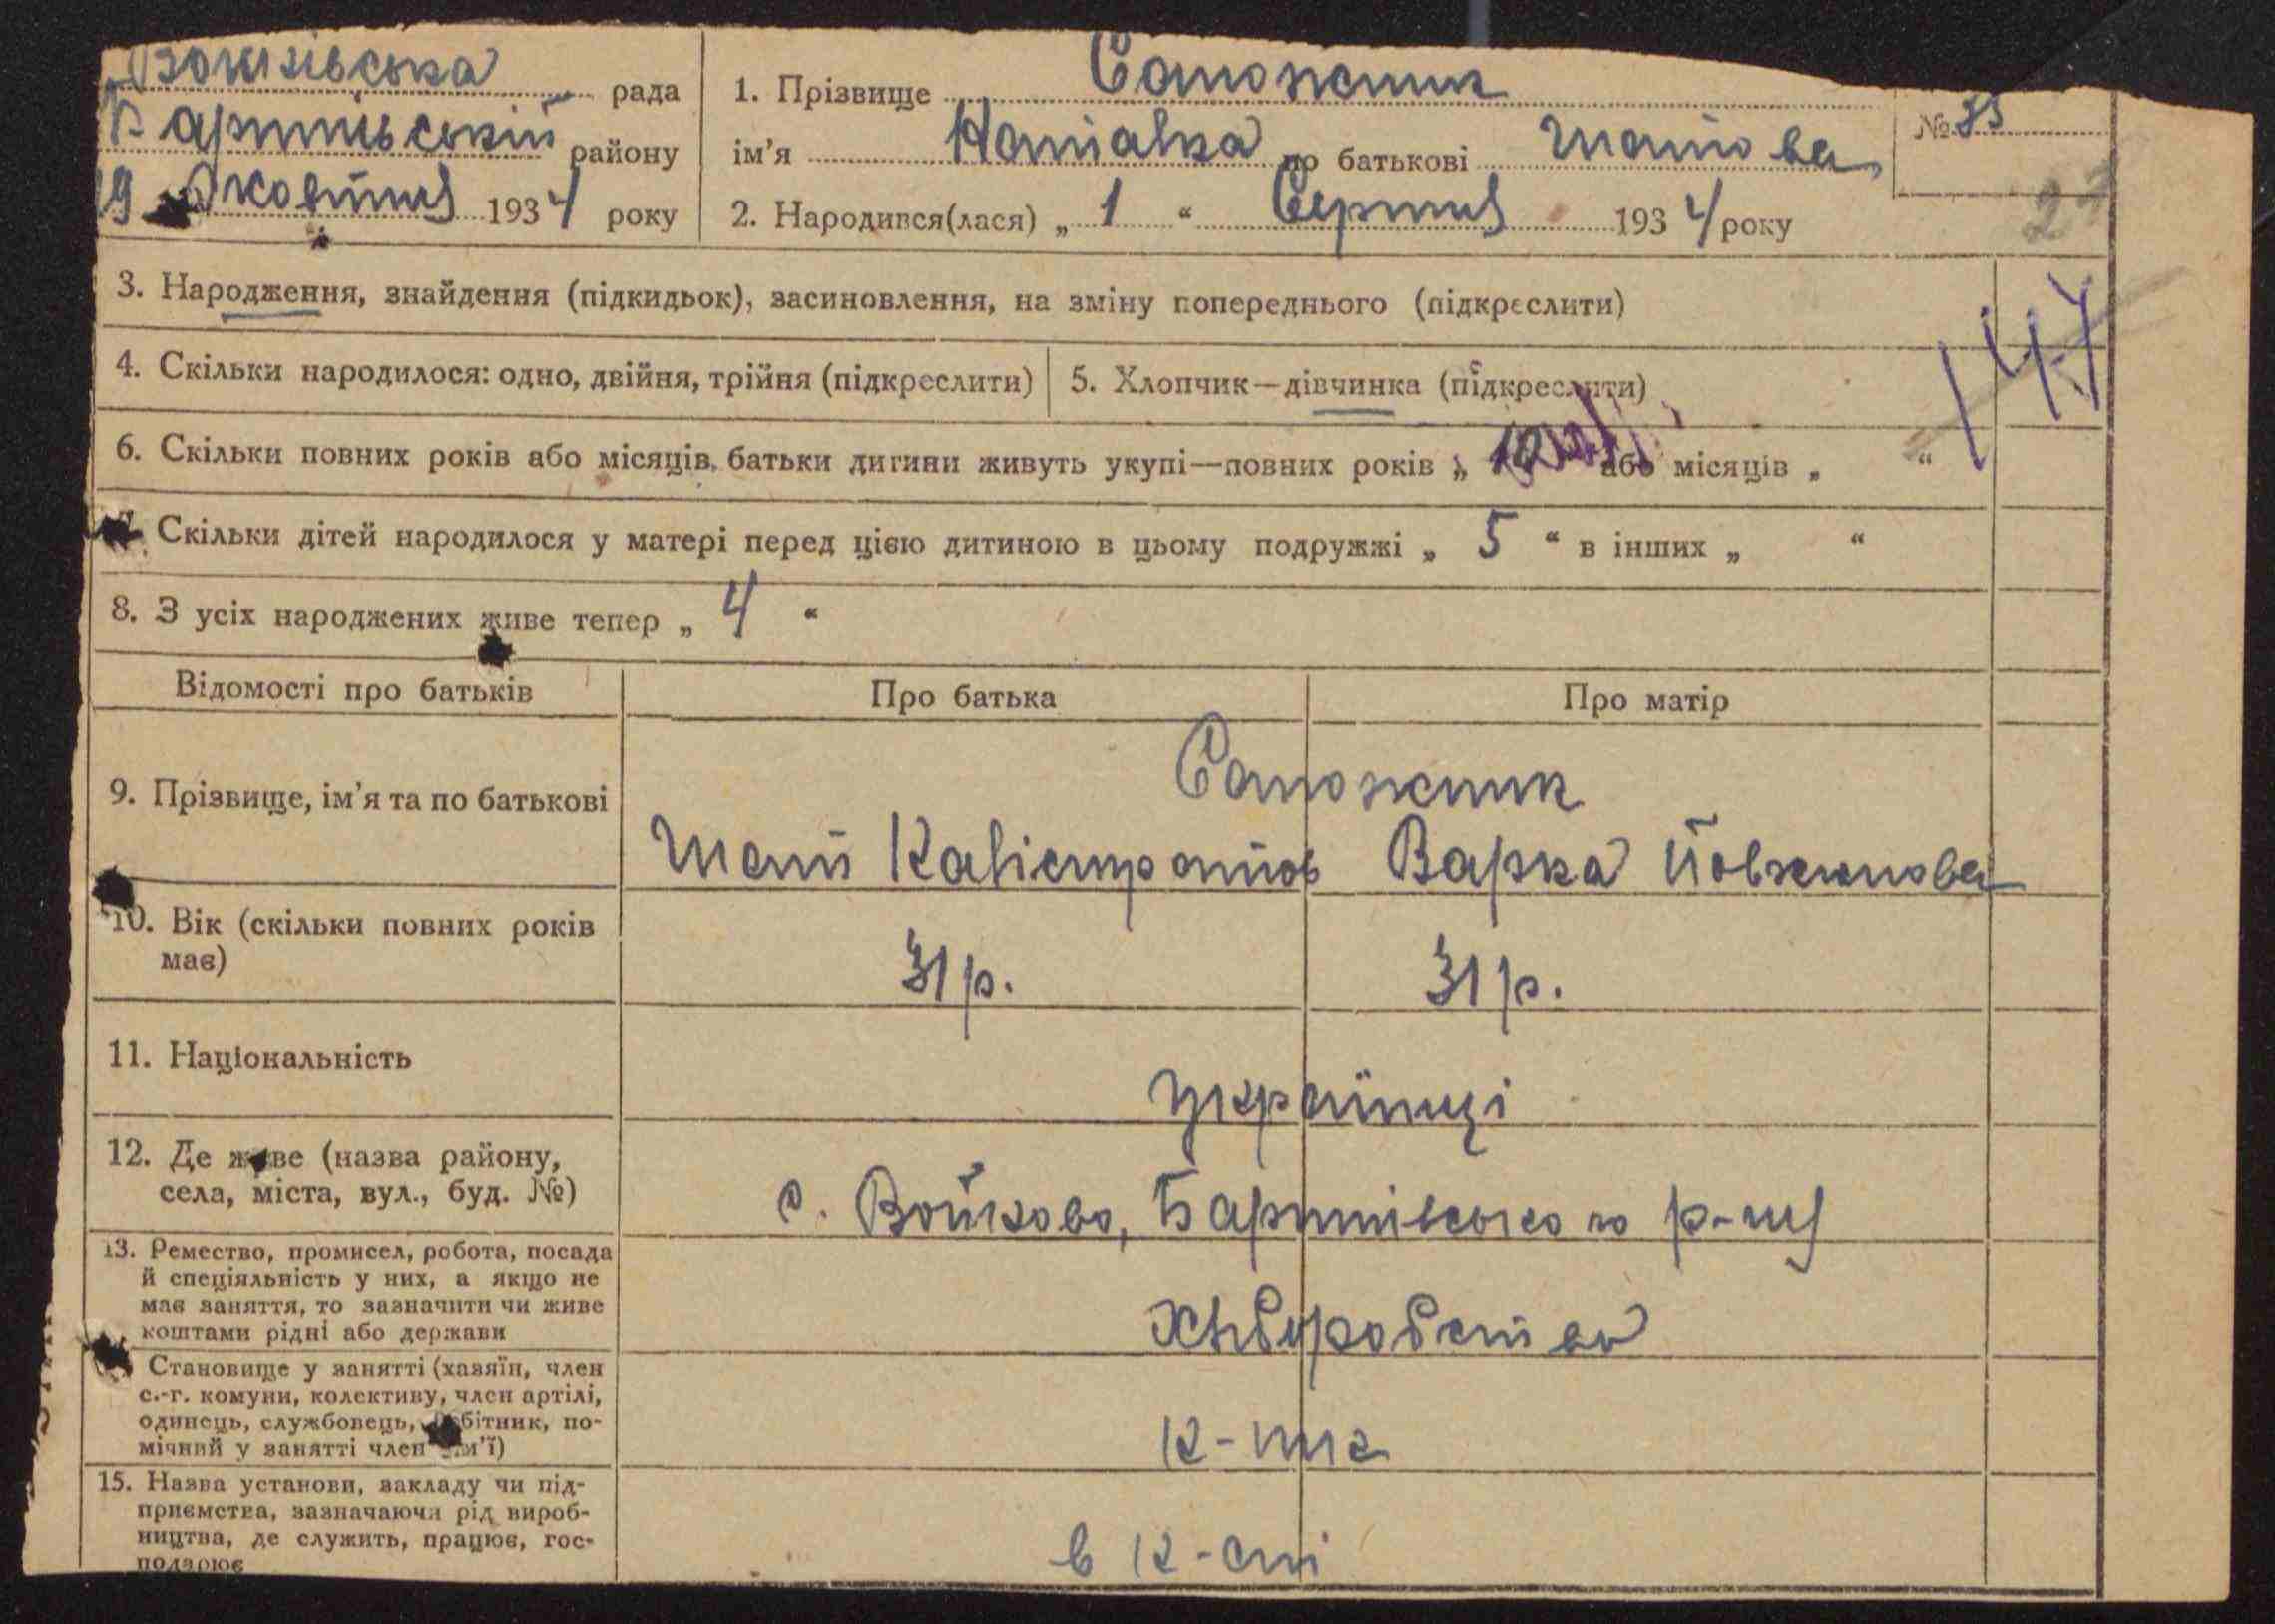 Войківська рада
Баришівський району
19 Жовтня 1934 року
1. Прізвище Сапожник
№ 35
ім’я Наталка по батькові
2. Народився(лася) „ 1 “ Серпня 1934 року
27
3. Народження, знайдення (підкидьок), засиновлення, на зміну попереднього (підкреслити)
147
4. Скільки народилося: одно, двійня, трійня (підкреслити)
5. Хлопчик—дівчинка (підкреслити)
6. Скільки повних років або місяців, батьки дитини живуть укупі—повних років „ або місяців „ “
7. Скільки дітей народилося у матері перед цією дитиною в цьому подружжі „ 5 “ в інших „ “
8. З усіх народжених живе тепер „ 4 “
Відомості про батьків
Про батька
Про матір
9. Прізвище, ім’я та по батькові
Сапожник
Калістратов Варка
10. Вік (скільки повних років
має)
31 р.
31 р.
11. Національність
українці
12. Де живе (назва району,
села, міста, вул., буд. №)
с. Войково, Баришівського р-ну
13. Ремество, промисел, робота, посада
й спеціяльність у них, а якщо не
має заняття, то зазначити чи живе
коштами рідні або держави
Хліборобство
Становище у занятті (хазяїн, член
с.-г. комуни, колективу, член артілі,
одинець, службовець, робітник, по-
мічний у занятті член сім’ї)
к-ник
15. Назва установи, закладу чи під-
приємства, зазначаючи рід вироб-
ництва, де служить, працює, гос-
подарює
в к-спі